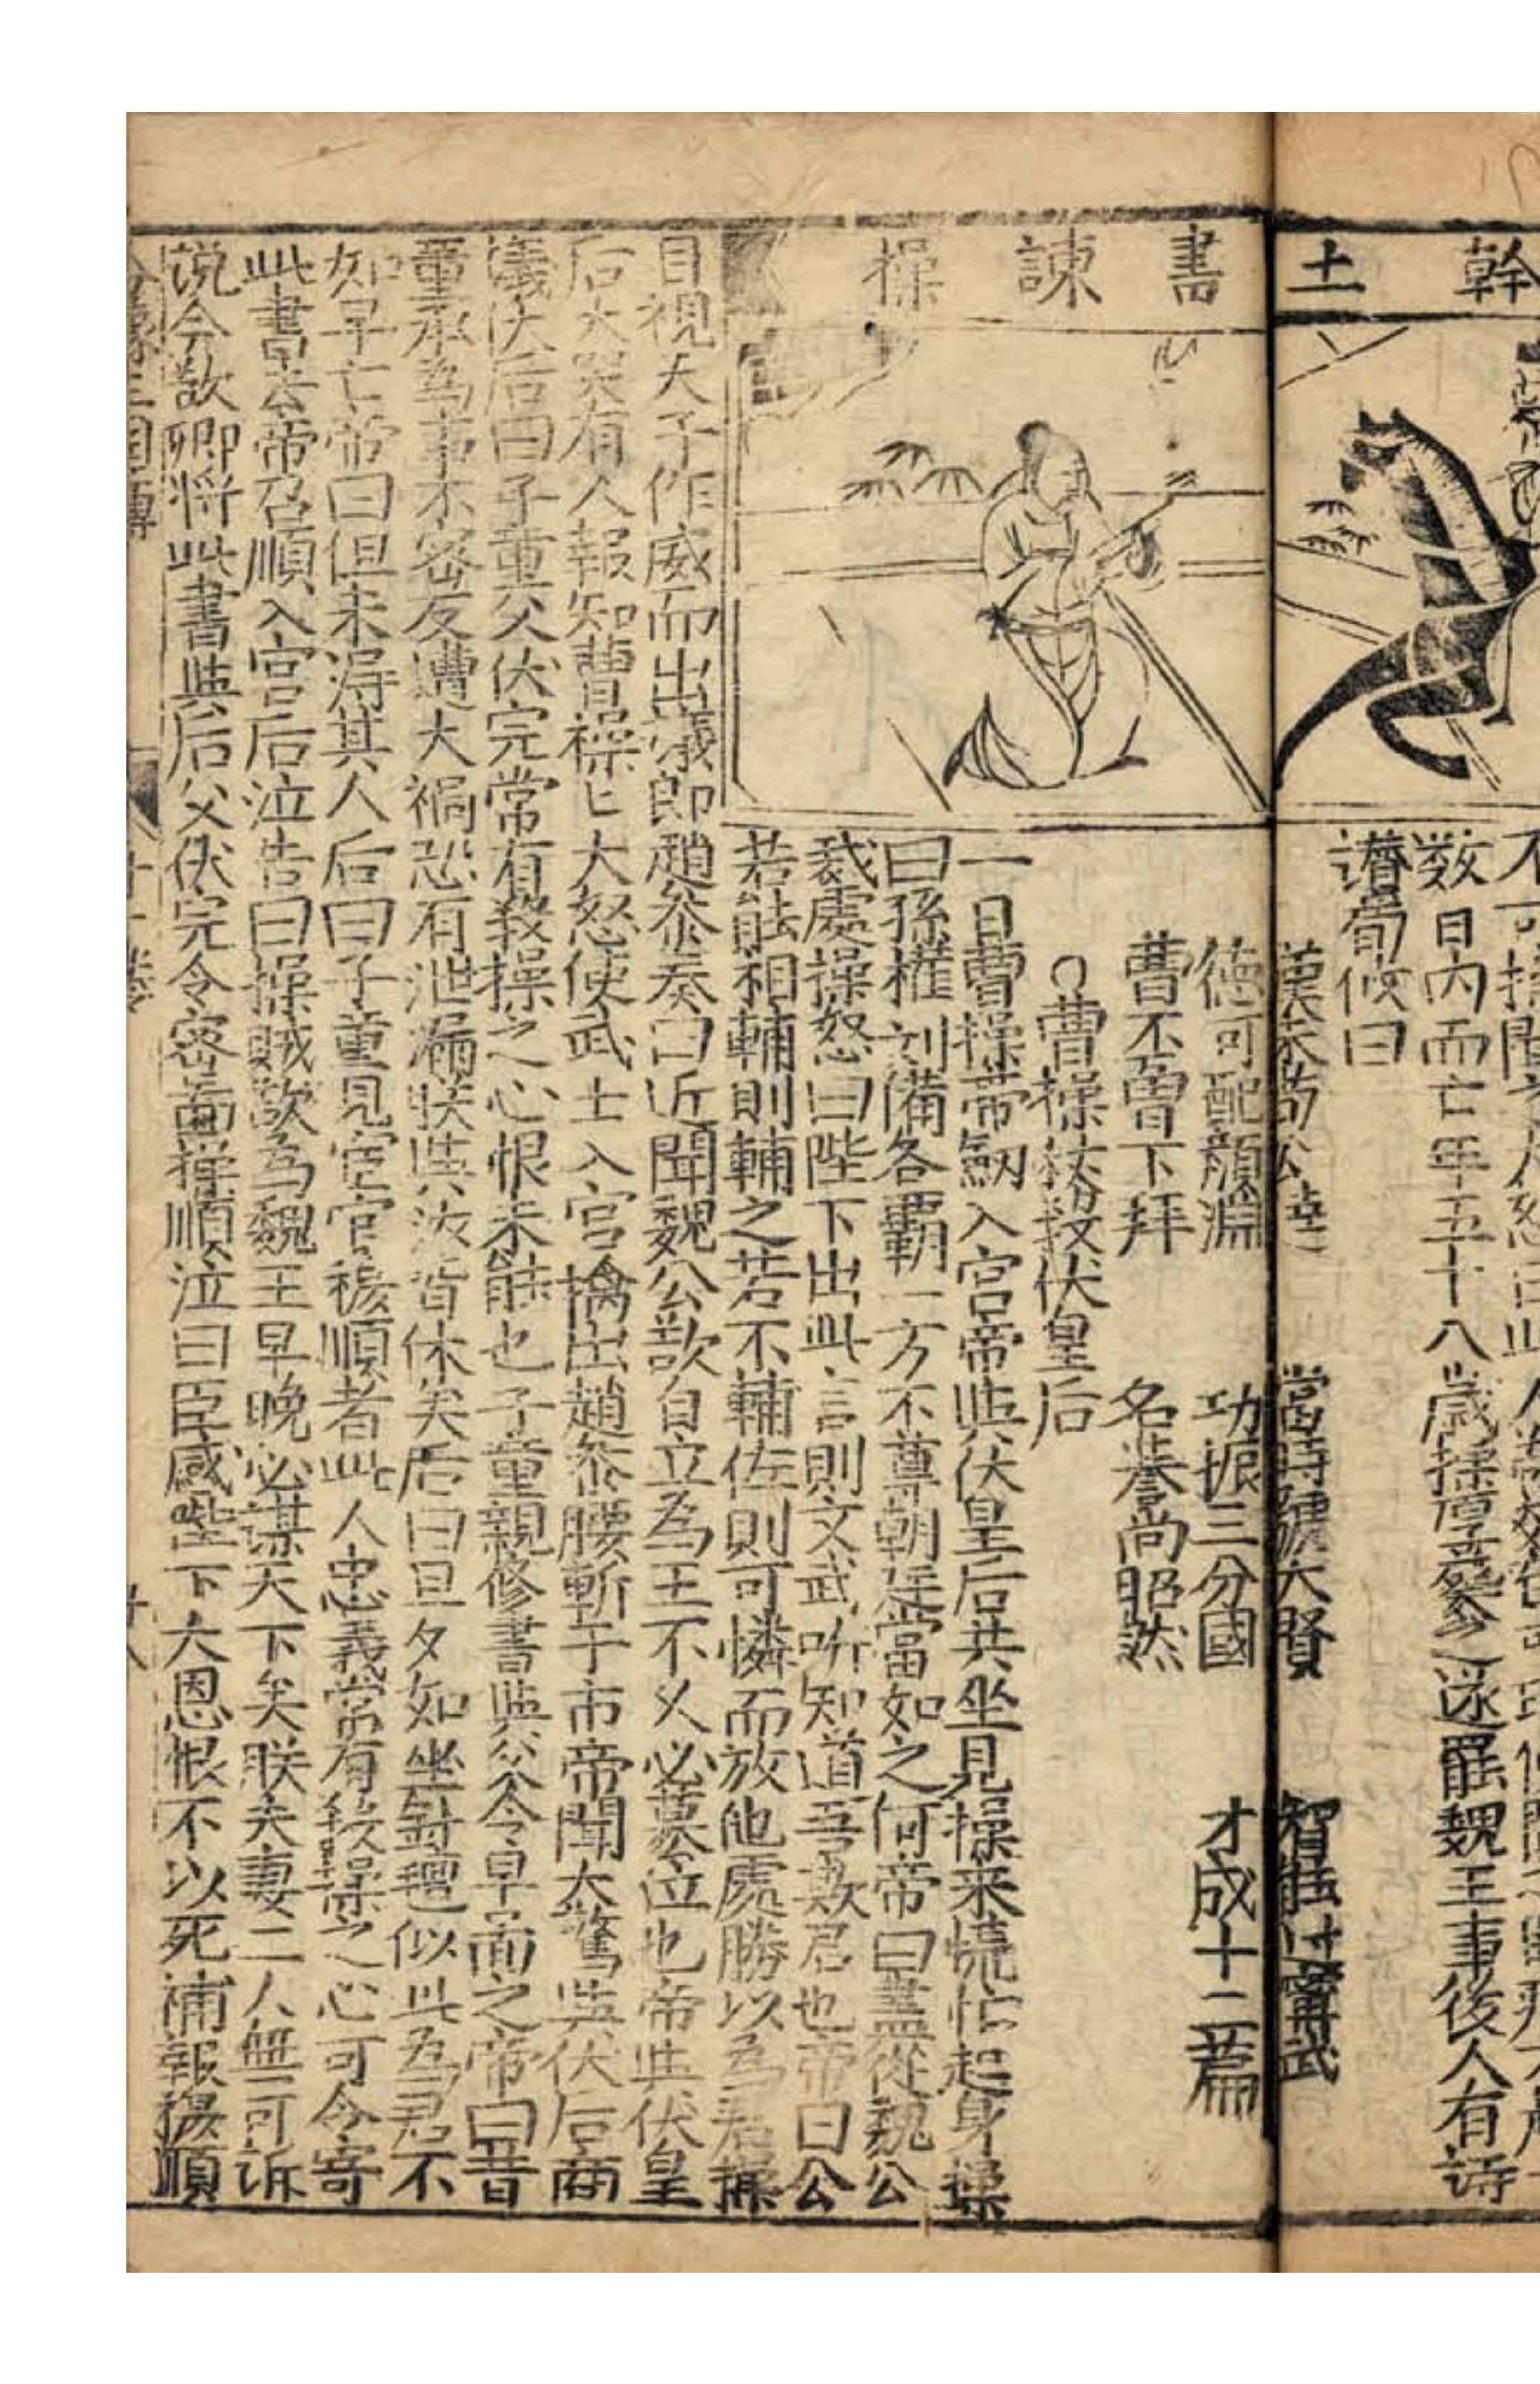 幹
土
書諫操
数日内而亡年五十八歳操厚葬之遂罷魏王事後人有詩
讃荀攸曰
漢末荀公達 當時號大賢 智能过寗武
德可配顔淵 功振三分國 才成十二篇
曹丕曽下拜 名譽尚昭然
○曹操杖殺伏皇后
一日曹操帶劔入宫帝與伏皇后共坐見操来慌忙起身操
曰孫權刘備各覇一方不尊朝廷當如之何帝曰盡從魏公
裁處操怒曰陛下出此言則文武听知道吾欺君也帝曰公
若能相輔則輔之若不輔佐則可憐而放他處勝以為君操
目視天子作威而出議郎趙泰奏曰近聞魏公欲自立為王不久必篡位也帝與伏皇
后大哭有人報知曹操匕大怒使武士入宫擒出趙泰腰斬于市帝聞大驚與伏后商
議伏后曰子童父伏完常有殺操之心恨未能也子童親修書與父令早圖之帝曰昔
董承為事不密反遭大禍恐有泄漏朕與汝皆休矣后曰旦夕如坐針氊似此為君不
如早亡帝曰但未淂其人后曰子童見宦官穆順者此人忠義常有殺操之心可令寄
此書去帝召順入宫后泣告曰操賊欲為魏王早晚必謀天下矣朕夫妻二人無可訴
説今欲卿将此書與后父伏完令密啚操順泣曰臣感陛下大恩恨不以死補報穆順